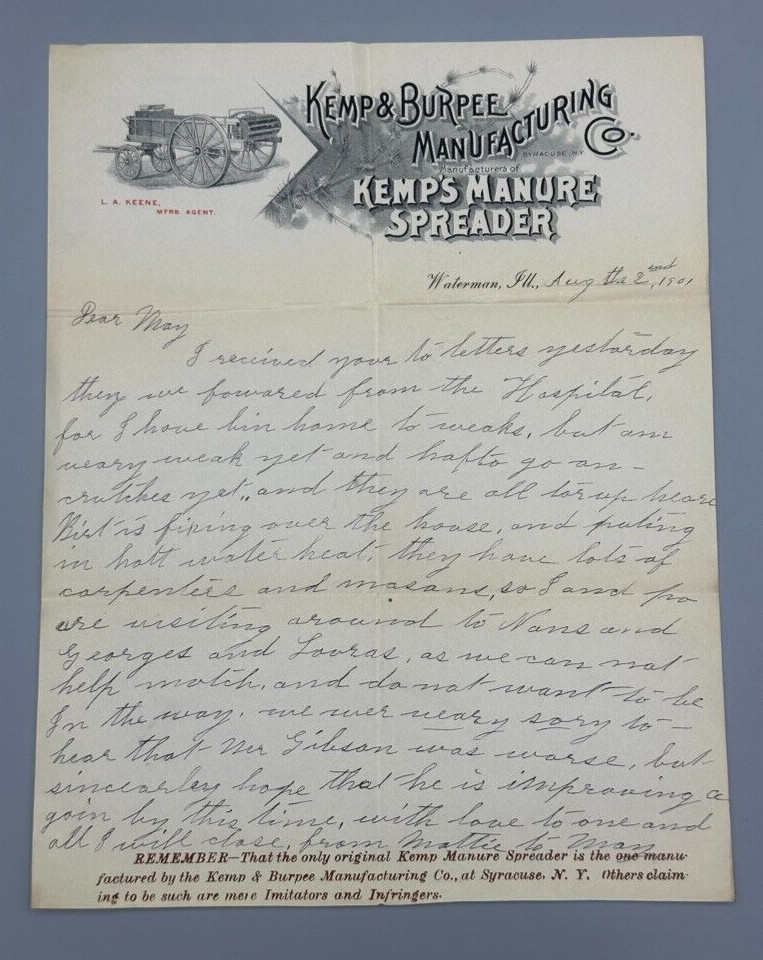 KEMP & BURPEE
MANUFACTURING
CO.
SYRACUSE, N.Y.
Manufacturers of
KEMP'S MANURE
SPREADER
L. A. KEENE,
MFRS. AGENT.
Waterman, Ill., Aug the 2nd, 1901
Dear May
I received your to letters yestarday
they we fowared from the Hospital,
for I have bin home to weaks, but am
veary weak yet and hafto go on-
crutches yet,, and they are all torup heare
Birt is fixing over the house, and puting
in hott water heat, they have lots of
carpenters and masons, so I and pa
are visiting around to Nans and
Georges and Louras, as we can not
help mutch, and do not want to be
In the way. we wer veary sory to-
hear that Mr Gibson was worse, but
sincearley hope that he is improving a
goin by this time, with love to one and
all I will close, from Mattie to May
REMEMBER—That the only original Kemp Manure Spreader is the one manu-
factured by the Kemp & Burpee Manufacturing Co., at Syracuse, N. Y. Others claim-
ing to be such are mere Imitators and Infringers.